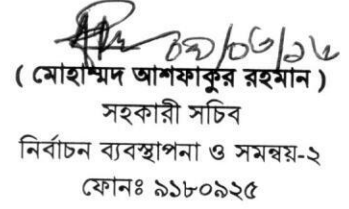 ( মোহাম্মদ আশফাকুর রহমান )
সহকারী সচিব
নির্বাচন ব্যবস্থাপনা ও সমন্বয়-২
ফোনঃ ৯১৮০৯২৫